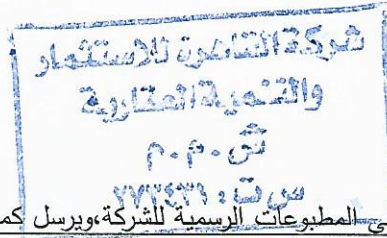 شركة القاهرة للاستثمار
والتنمية العقارية
ش.م.م
س ت:
ي المطبوعات الرسمية للشركة،ويرسل كم